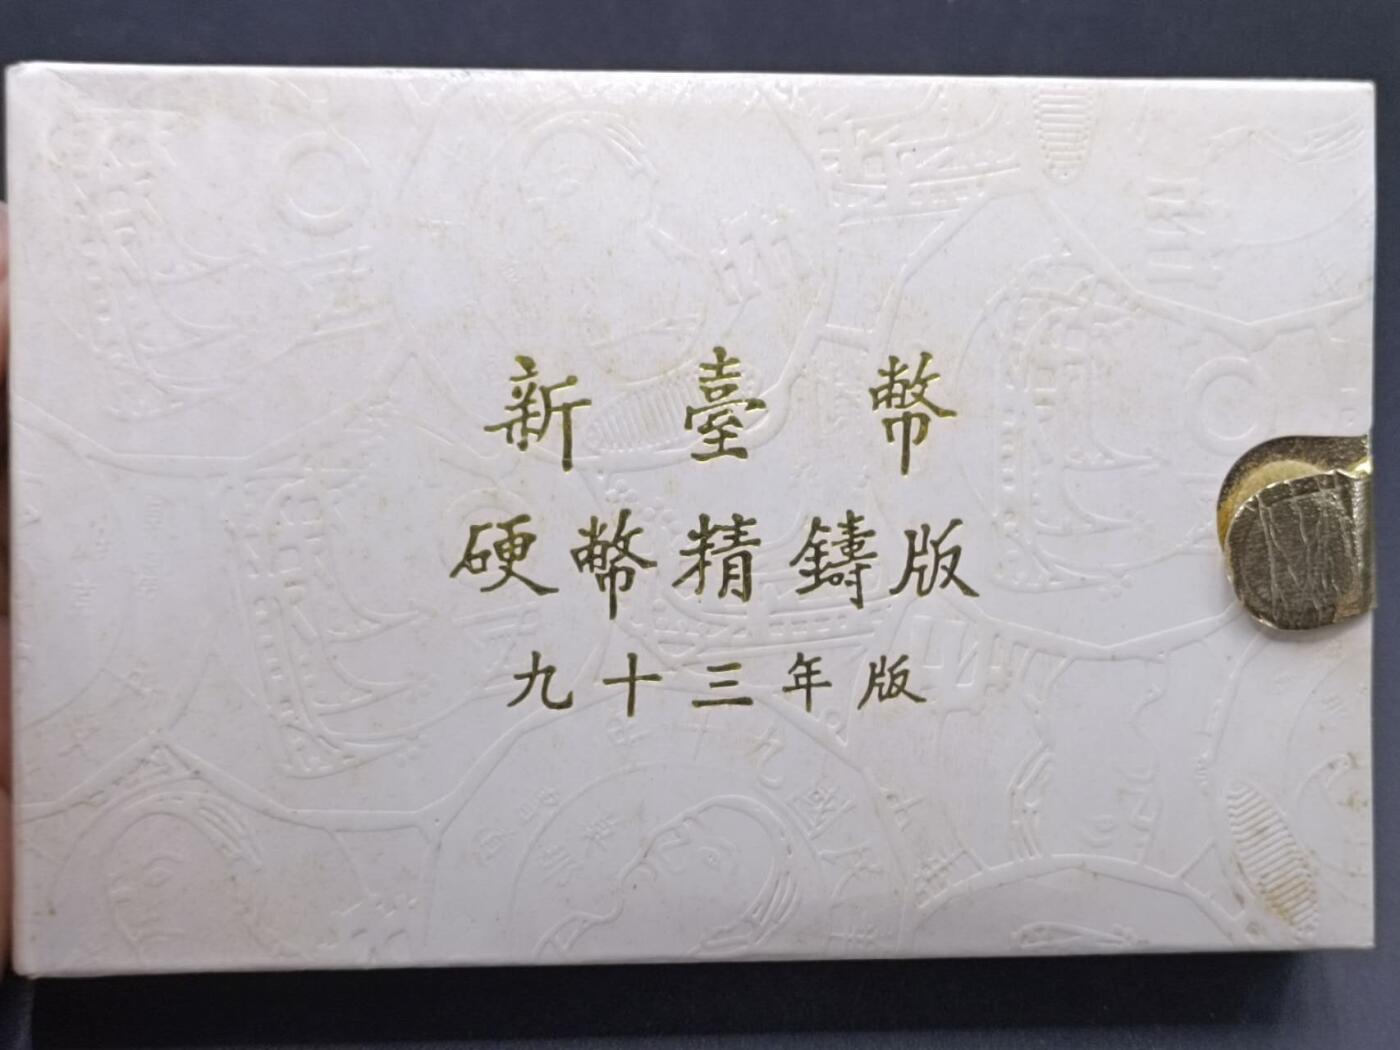 新臺幣
硬幣精鑄版
九十三年版